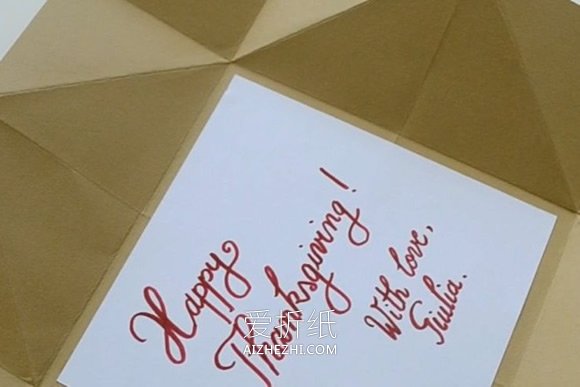 Happy
Thanksgiving!
With love,
Giulia.
爱折纸
AIZHEZHI.COM